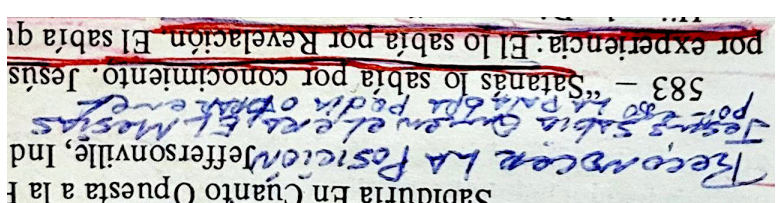 Sabiduría En Cuanto Opuesta a la
Reconocer LA Posición Jeffersonville, Ind
Jesus sabia Quien el era, EL Mesias
por eso LA Palabra podia obrar en el
583 – “Satanás lo sabía por conocimiento. Jesús
por experiencia; El lo sabía por Revelación. El sabía qu